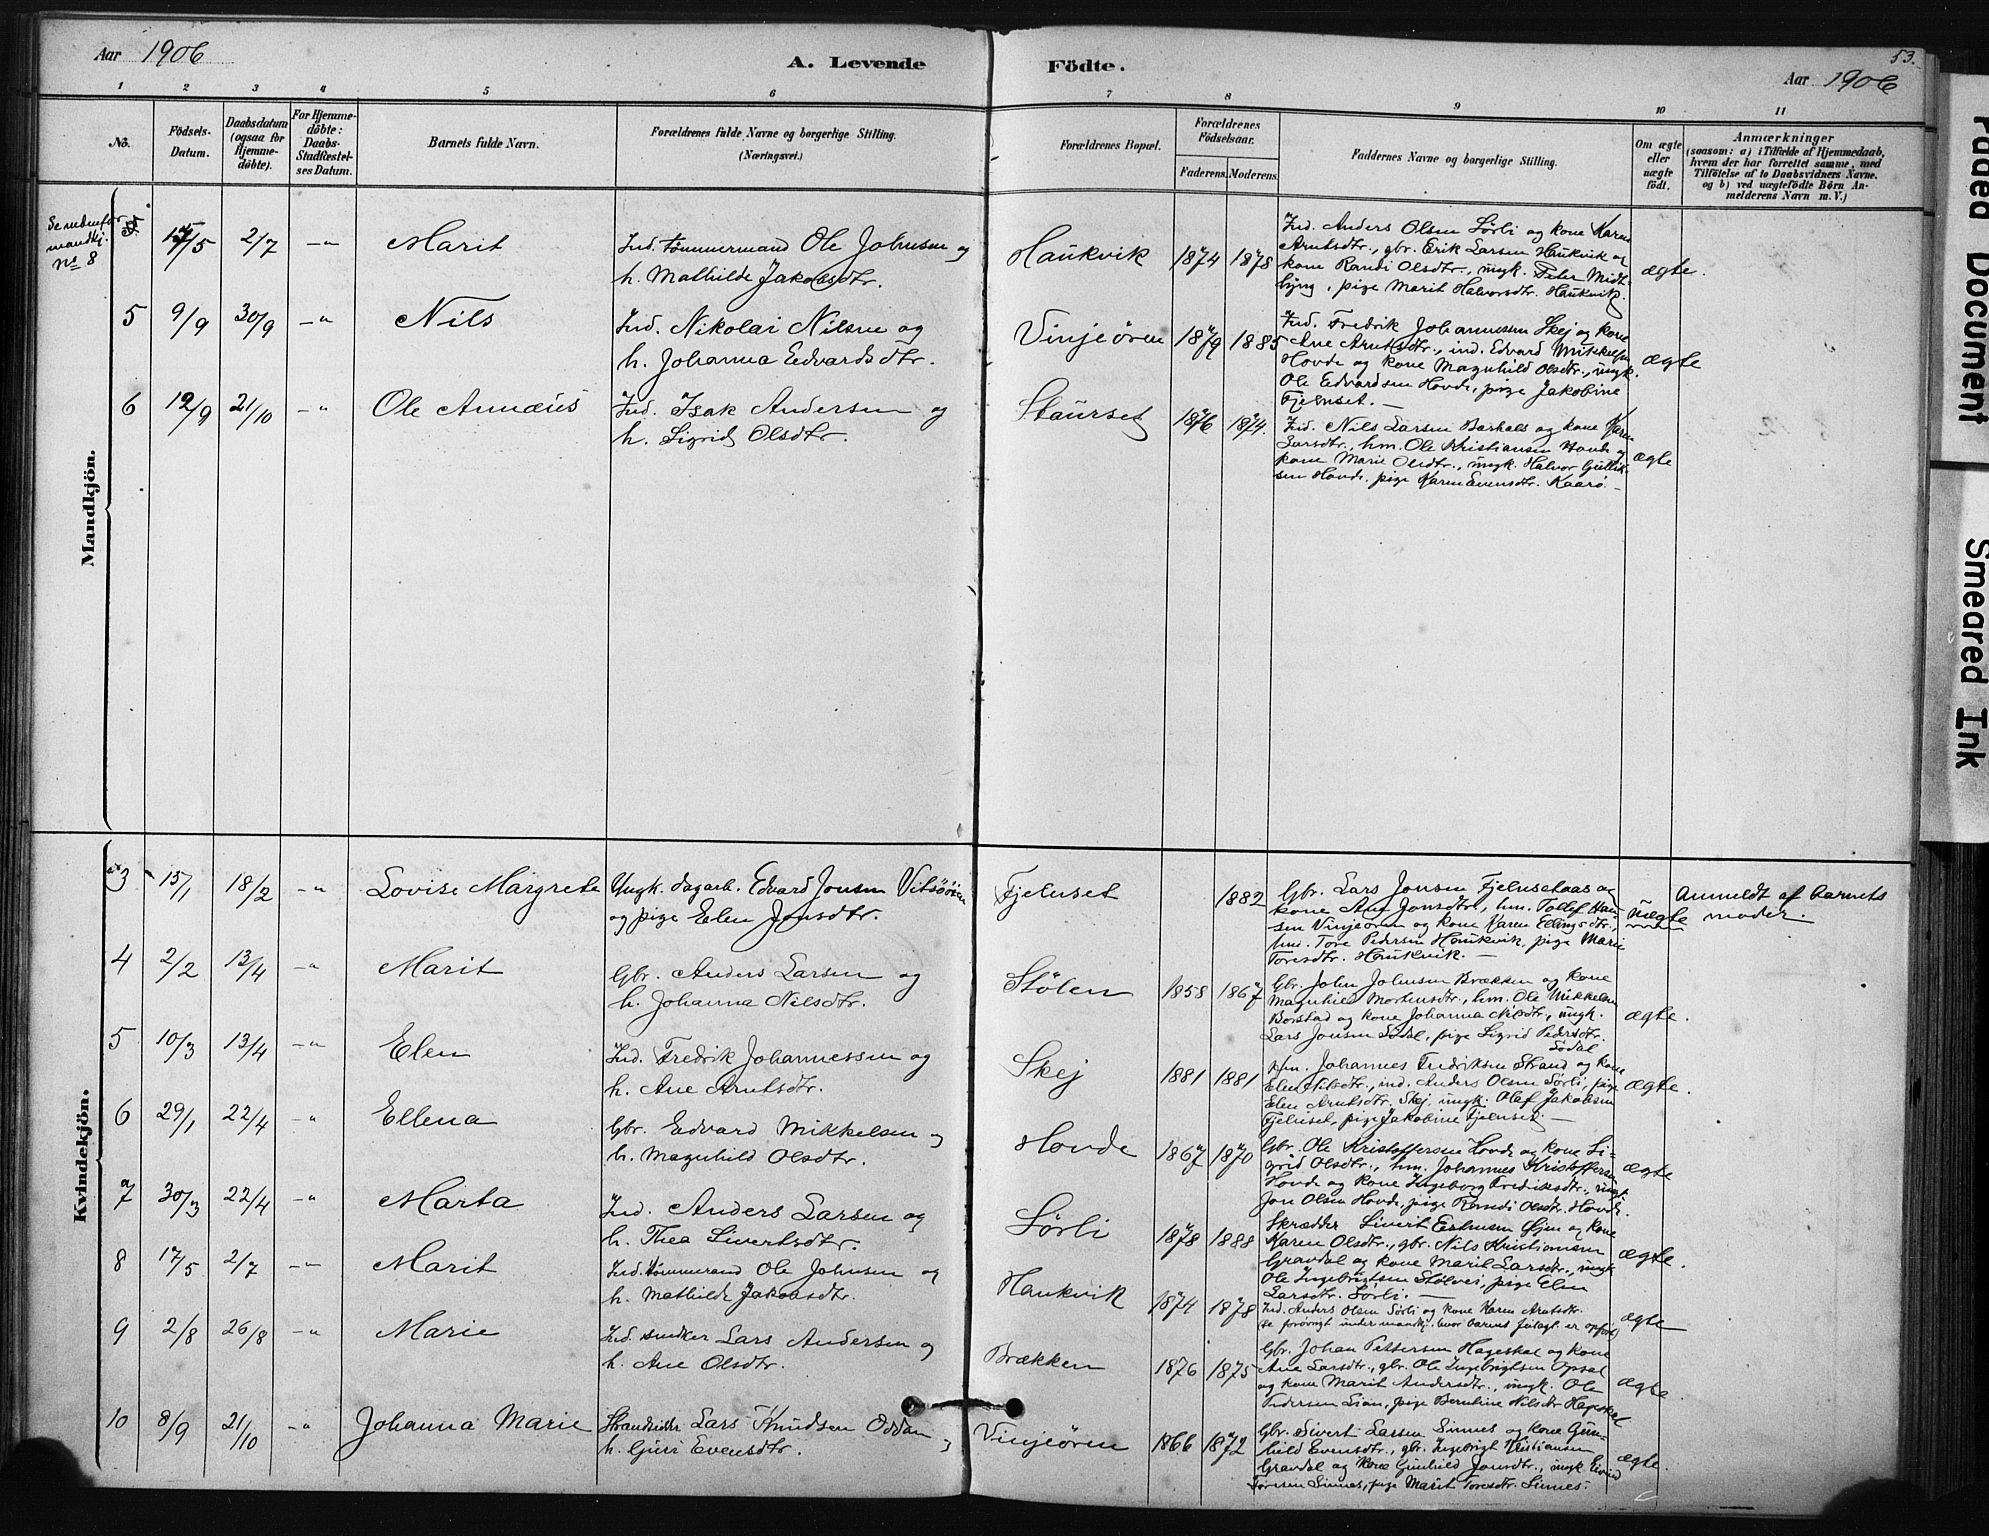 Aar 1906
A. Levende Födte.
53.
Aar 1906
1 2 3 4 5 6 7 8 9 10 11
No.
Födsels-Datum.
Daabsdatum (ogsaa for Hjemmedöbte).
For Hjemmedöbte: Daabs-Stadfæstelses Datum.
Barnets fulde Navn.
Forældrenes fulde Navne og borgerlige Stilling.
(Næringsvei.)
Forældrenes Bopæl.
Forældrenes Födselsaar.
Faderens. Moderens.
Faddernes Navne og borgerlige Stilling.
Om ægte eller uægte födt.
Anmærkninger
(saasom: a) i Tilfælde af Hjemmedaab, hvem der har forrettet samme, med Tilföielse af to Daabsvidners Navne. og b) ved uægtefödte Börn Anmelderens Navn m. V.)
Mandkjön.
Se nedenfor
No 8
17/5 2/7 -"- Marit
Ind. tømmermand Ole Johnsen og
h. Mathilde Jakobsdtr.
Haukvik 1874 1878
Ind. Anders Olsen Sørli og kone Karen
Arntsdtr., gbr. Erik Larsen Haukvik og
kone Randi Olsdtr., ungk. Peter Midt-
byng, pige Marit Halvorsdtr. Haukvik.
ægte.
5 9/9 30/9 -"- Nils
Ind. Nikolai Nilsen og
h. Johanna Edvardsdtr.
Vinjeøren 1879 1885
Ind. Fredrik Johannessen Skej og kone
Ane Arntsdtr., ind. Edvard Mikkelsen
Hovde og kone Magnhild Olsdtr., ungk.
Ole Edvardsen Hovde, pige Jakobine
Fjelnset. -
ægte
6 12/9 21/10 -"- Ole Annæus
Ind. Isak Andersen og
h. Sigrid Olsdtr.
Staurset 1876 1874.
Ind. Nils Larsen og kone Karen
Larsdtr., hm. Ole Kristiansen Hovde og
kone Marie Olsdtr., ungk. Halvor Gullik-
sen Hovde, pige Karen Evensdtr. Kaarø. -
ægte
Kvindekjön.
3 15/1 18/2 -"- Lovise Margrete
Ungk. dagarb. Edvard Jonsen Vitsøøien
og pige Elen Jonsdtr.
Fjelnset 1882
Gbr. Lars Jonsen Fjelnsetaas og
kone Ane Jonsdtr., hm. Tollef Han-
sen Vinjeøren og kone Karen Ellingsdtr.,
ind. Tore Pedersen Haukvik, pige Marie
Toresdtr. Haukvik. -
Uægte
Anmeldt af barnets
moder.
4 2/2 13/4 -"- Marit
Gbr. Anders Larsen og
h. Johanna Nilsdtr.
Stølen 1858 1867
Gbr. John Johnsen Brækken og kone
Magnhild Mortensdtr., hm. Ole Mikkelsen
Borstad og kone Johanna Nilsdtr., ungk.
Lars Jonsen Sødal, pige Sigrid Pedersdtr.
Sødal
ægte.
5 10/3 13/4 -"- Elen
Ind. Fredrik Johannessen og
h. Ane Arntsdtr.
Skej 1881 1881
Hm. Johannes Fredriksen Strand og kone
Elen Nilsdtr., ind. Anders Olsen Sørli, pige
Elen Arntsdtr. Skej, ungk. Olaf Jakobsen
Fjelnset, pige Jakobine Fjelnset. -
ægte.
6 29/1 22/4 -"- Ellena
Gbr. Edvard Mikkelsen og
h. Magnhild Olsdtr.
Hovde 1867 1870
Gbr. Ole Kristoffersen Hovde og kone Si-
grid Olsdtr., hm. Johannes Kristoffersen
Hovde og kone Ingeborg Fredriksdtr., ungk.
Jon Olsen Hovde, pige Randi Olsdtr. Hovde.
ægte
7 30/3 22/4 -"- Marta
Ind. Anders Larsen og
h. Thea Sivertsdtr.
Sørli 1878 1888
Skrædder Sivert Estensen Øjen og kone
Karen Olsdtr., gbr. Nils Kristiansen
Gravdal og kone Marit Larsdtr., ungk.
Ole Ingebrigtsen Stølvei, pige Elen
Larsdtr. Sørli. -
ægte.
8 17/5 2/7 -"- Marit
Ind. tømmermand Ole Johnsen og
h. Mathilde Jakobsdtr.
Haukvik 1874 1878
Ind. Anders Olsen Sørli og kone Karen Arntsdtr.
(se forøvrigt under mandkj. hvor barnet feilagt. er opført)
ægte
9 2/8 26/8 -"- Marie
Ind. snedker Lars Andersen og
h. Ane Olsdtr.
Brækken 1876 1875
Gbr. Johan Pettersen Hageskal og kone
Ane Larsdtr., gbr. Ole Ingebrigtsen Opsal
og kone Marit Andersdtr., ungk. Ole
Pedersen Lian, pige Bernhine Nilsdtr Hageskal
ægte
10 8/9 21/10 -"- Johanna Marie
Strandsidder Lars Knudsen Oddan og
h. Guri Evensdtr.
Vinjeøren 1866 1872
Gbr. Sivert Larsen Sinnes og kone Gun-
hild Evensdtr., gbr. Ingebrigt Kristiansen
Gravdal og kone Gunhild Jonsdtr., ungk. Eivind
Toresen Sinnes, pige Marit Toresdtr. Sinnes.
ægte.
Faded Document
Smeared Ink